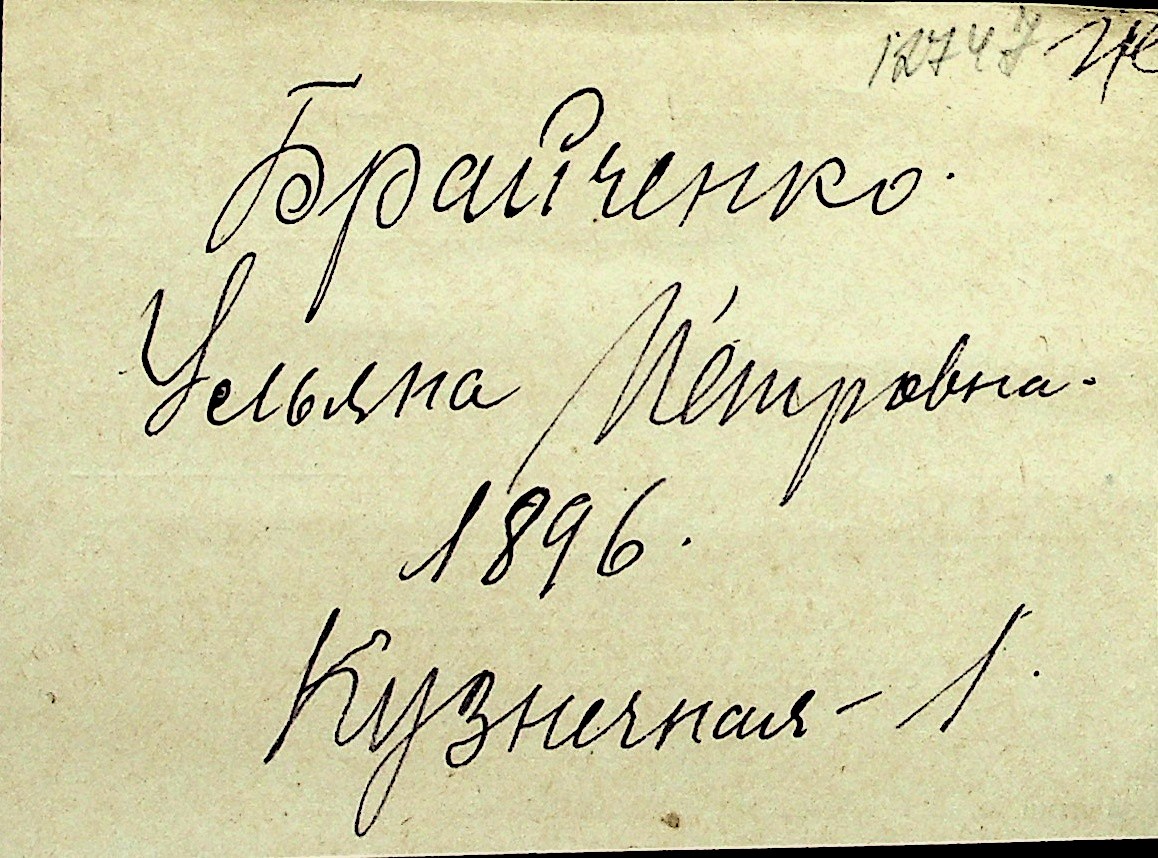 12747 Ж
Брайченко.
Ульяна Петровна.
1896.
Кузнечная - 1.